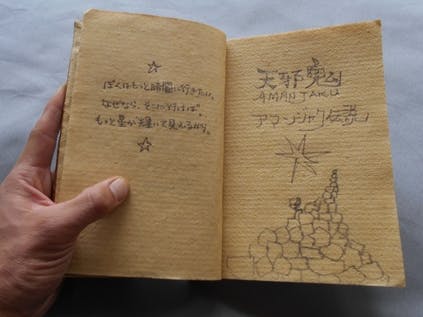 ぼくはもっと暗闇に行きたい。
なぜなら、そこに行けば、
もっと星が光輝いて見えるから。
天邪鬼
AMANJAKU
アマンジャク伝説